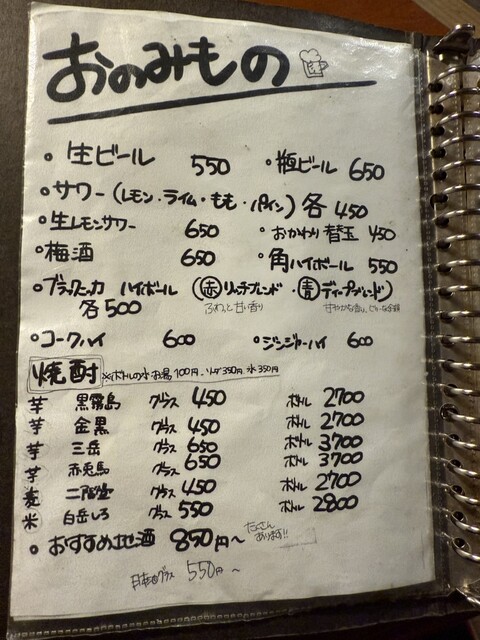 おのみもの
・生ビール 550 ・瓶ビール 650
・サワー(レモン・ライム・もも・パイン)各450
・生レモンサワー 650 ・おかわり替玉 450
・梅酒 650 ・角ハイボール 550
・ブラックニッカ ハイボール (赤リッチブレンド・青ディープブレンド)
各500 ふわっと甘い香り
・コークハイ 600 ・ジンジャーハイ 600
焼酎 ※ボトルの水お湯100円、ソーダ350円 氷350円
芋 黒霧島 グラス 450 ボトル 2700
芋 金黒 グラス 450 ボトル 2700
芋 三岳 グラス 650 ボトル 3700
芋 赤兎馬 グラス 650 ボトル 3700
麦 二階堂 グラス 450 ボトル 2700
米 白岳しろ グラス 550 ボトル 2800
・おすすめ地酒 850円~ たくさんあります!!
日本酒グラス 550円~